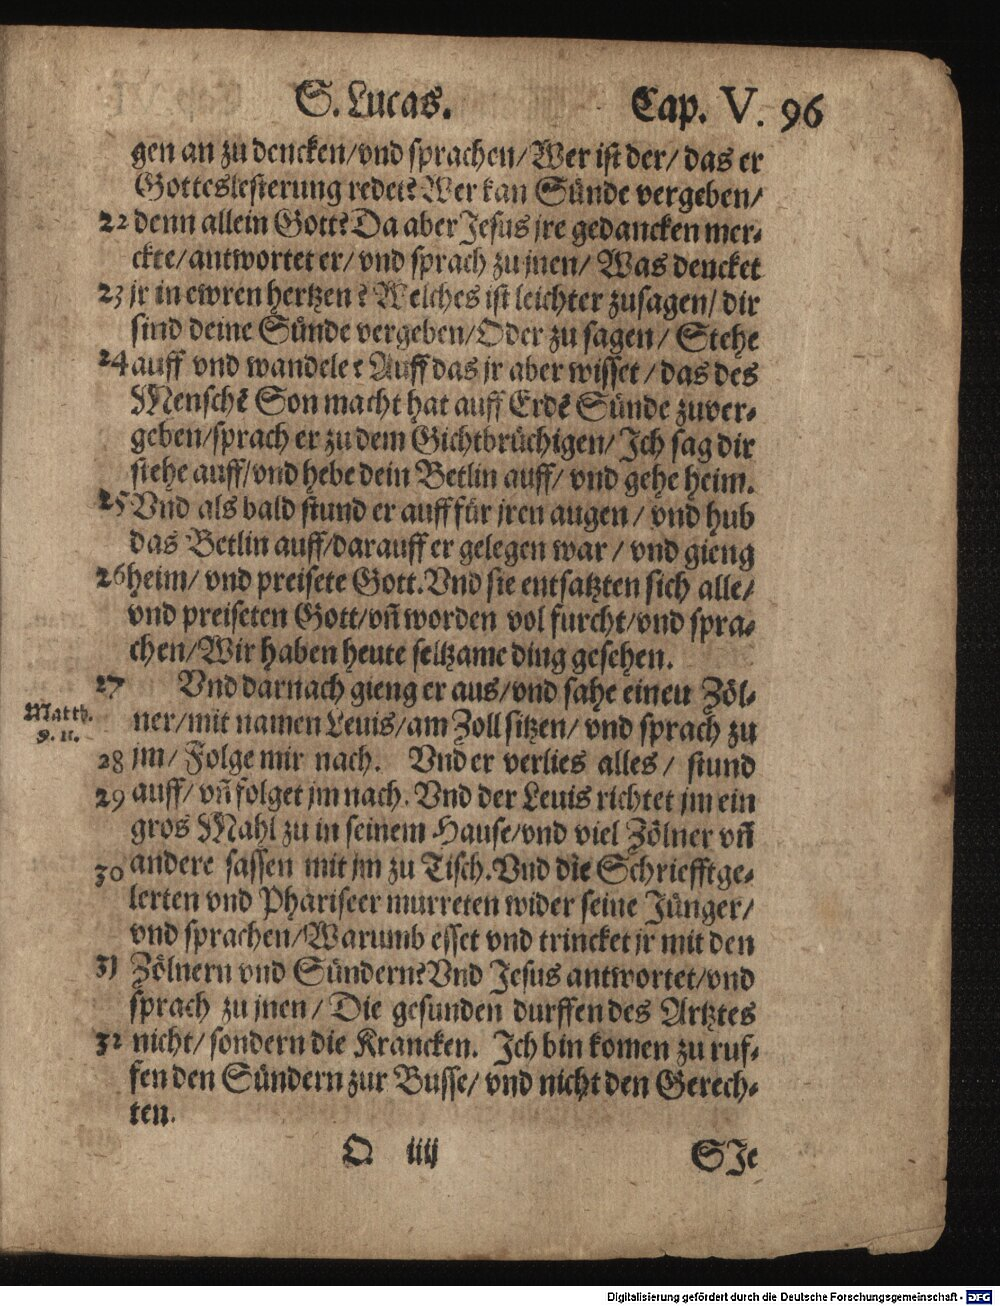 S. Lucas. Cap. V. 96
gen an zu dencken/vnd sprachen/Wer ist der/ das er
Gotteslesterung redet? Wer kan Sünde vergeben/
22 denn allein Gott? Da aber Jesus jre gedancken mer-
ckte/antwortet er/ vnd sprach zu jnen/ Was dencket
23 jr in ewren hertzen? Welches ist leichter zusagen/ dir
sind deine Sünde vergeben/Oder zu sagen/ Stehe
24 auff vnd wandele? Auff das jr aber wisset/ das des
Menschē Son macht hat auff Erdē Sünde zuver-
geben/sprach er zu dem Gichtbrüchigen/ Ich sag dir
stehe auff/vnd hebe dein Betlin auff/ vnd gehe heim.
25 Vnd als bald stund er auff für jren augen/ vnd hub
das Betlin auff/darauff er gelegen war/ vnd gieng
26 heim/ vnd preisete Gott. Vnd sie entsatzten sich alle/
vnd preiseten Gott/vñ worden vol furcht/vnd spra-
chen/Wir haben heute seltzame ding gesehen.
27 Vnd darnach gieng er aus/vnd sahe einen Zöl-
Matth. 9. 11.
ner/mit namen Leuis/am Zoll sitzen/ vnd sprach zu
28 jm/ Folge mir nach. Vnd er verlies alles/ stund
29 auff/ vñ folget jm nach. Vnd der Leuis richtet jm ein
gros Mahl zu in seinem Hause/vnd viel Zölner vñ
30 andere sassen mit jm zu Tisch. Vnd die Schriefftge-
lerten vnd Phariseer murreten wider seine Jünger/
vnd sprachen/Warumb esset vnd trincket jr mit den
31 Zölnern vnd Sündern? Vnd Jesus antwortet/vnd
sprach zu jnen/ Die gesunden durffen des Artztes
32 nicht/ sondern die Krancken. Ich bin komen zu ruf-
fen den Sündern zur Busse/ vnd nicht den Gerech-
ten.
O iiij SJe
Digitalisierung gefördert durch die Deutsche Forschungsgemeinschaft - DFG